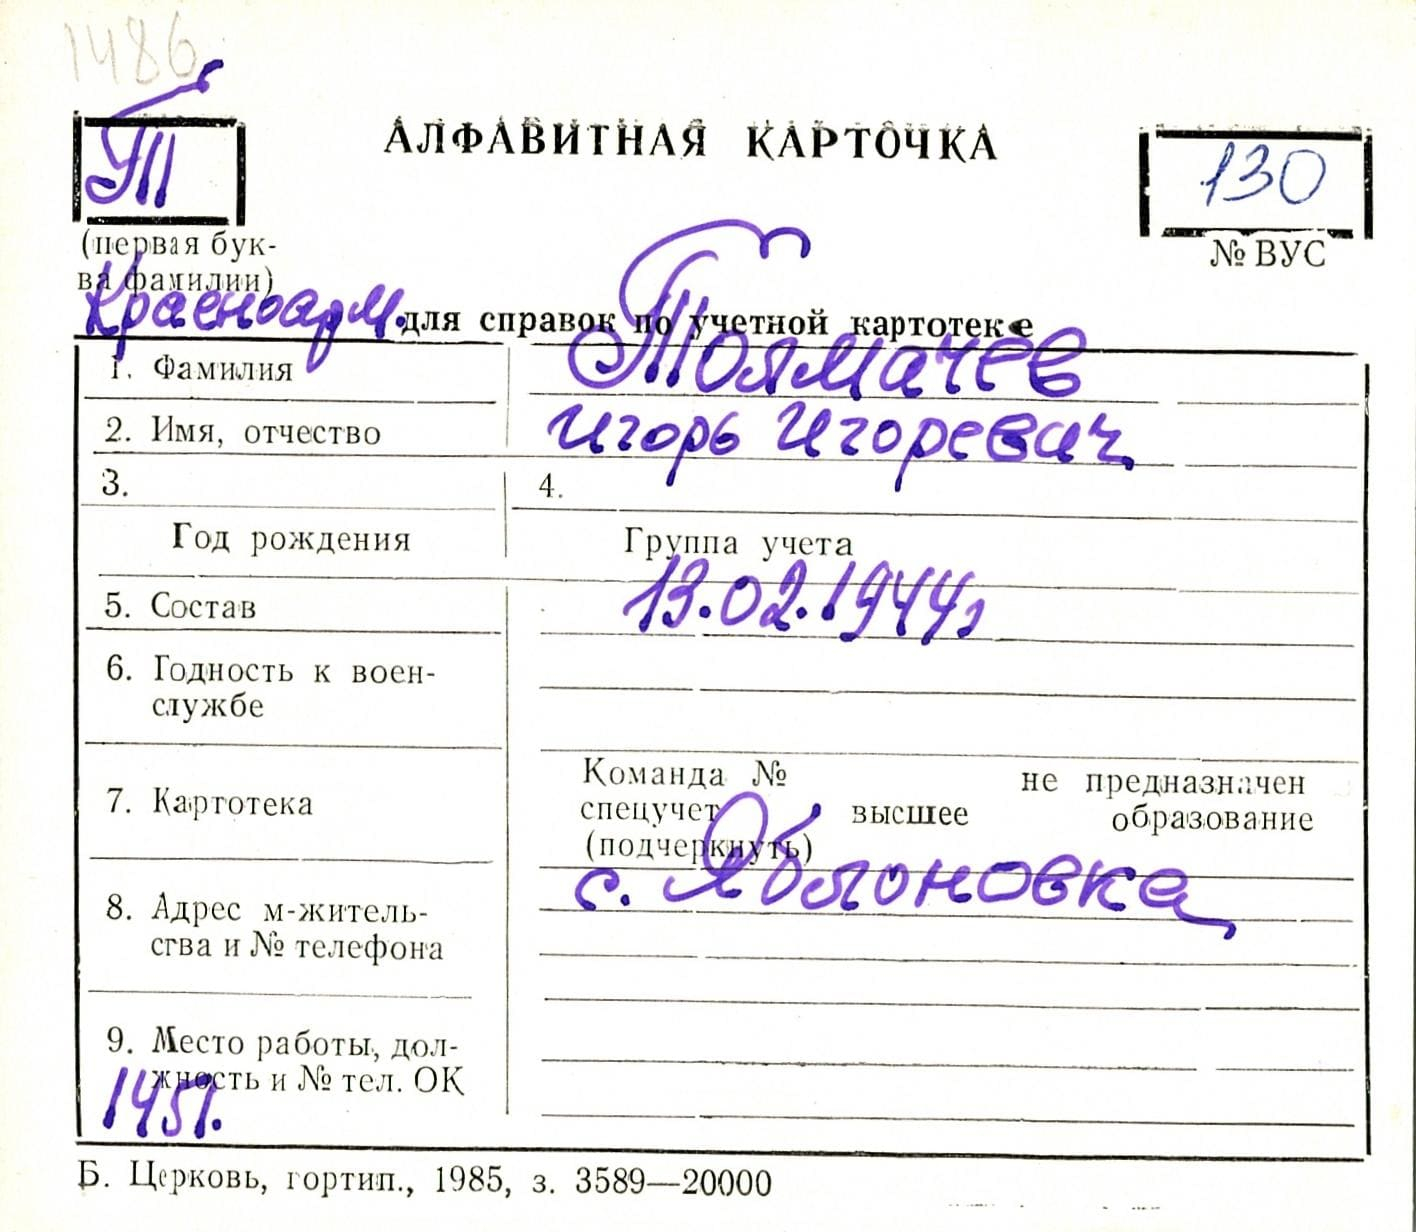 1486
Т
АЛФАВИТНАЯ КАРТОЧКА
130
(первая бук-
ва фамилии)
№ ВУС
Красноарм. для справок по учетной картотеке
1. Фамилия Толмачев
2. Имя, отчество Игорь Игоревич
3. 4.
Год рождения Группа учета
5. Состав 13.02.1944г
6. Годность к воен-
службе
7. Картотека
Команда № не предназначен
спецучет высшее образование
(подчеркнуть)
8. Адрес м-житель-
ства и № телефона
с. Яблоновка
9. Место работы, дол-
жность и № тел. ОК
1451.
Б. Церковь, гортип., 1985, з. 3589—20000